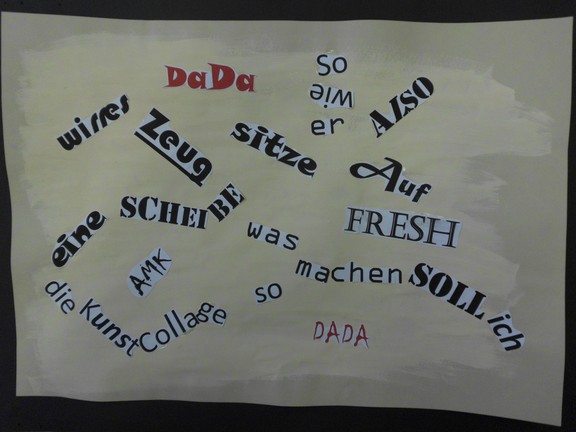 DaDa
So
wie
er
ALSO
wirres
Zeug
sitze
Auf
eine
SCHEIBE
was
FRESH
AMK
machen
SOLL
ich
die KunstCollage
so
DADA